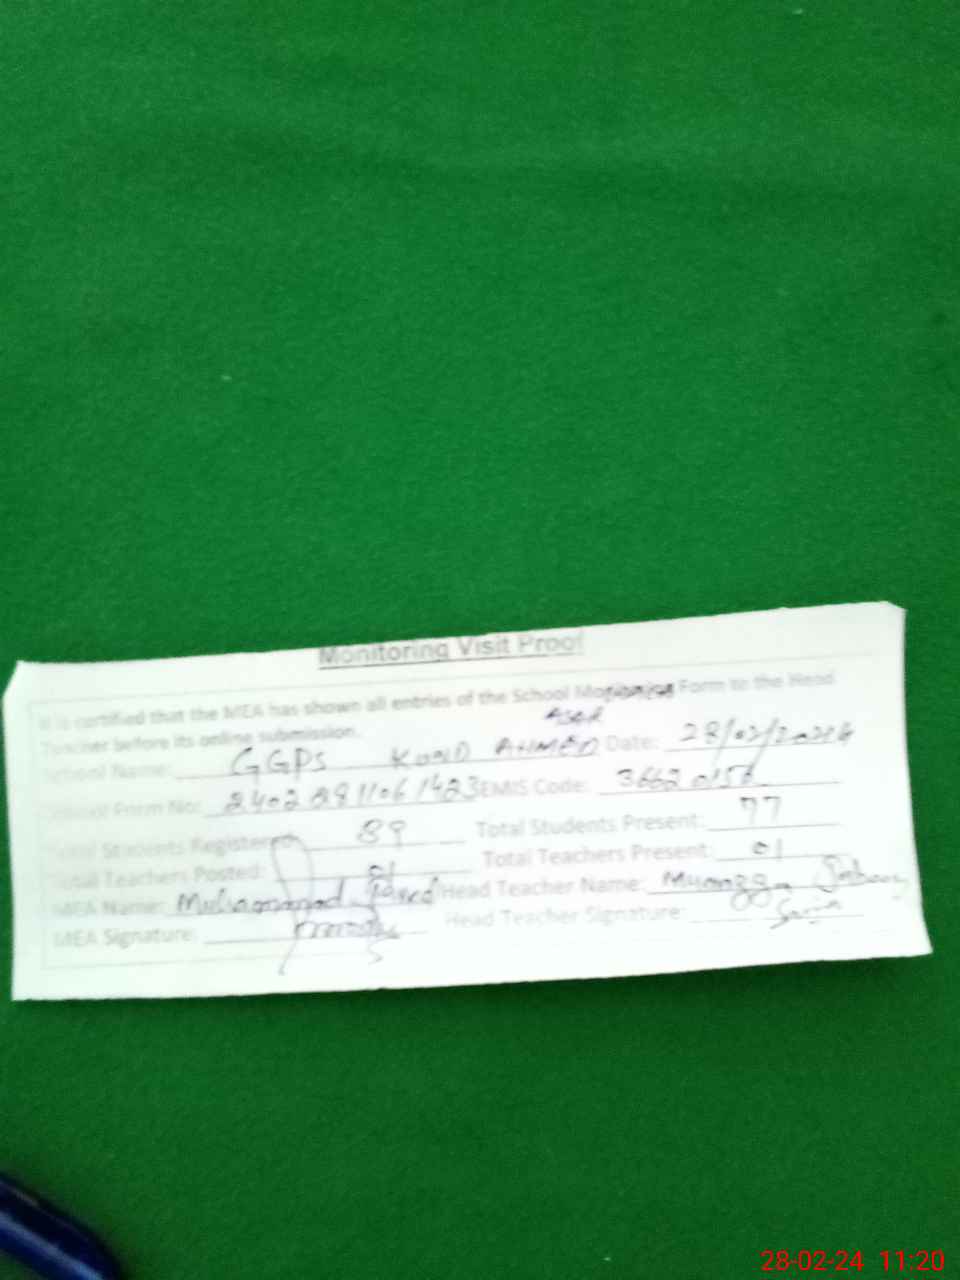 Monitoring Visit Proof
It is certified that the MEA has shown all entries of the School Monitoring Form to the Head
Teacher before its online submission.
School Name: GGPS AHMED Date: 28/02/2024
Form No: EMIS Code:
Total Students Registered: 89 Total Students Present: 77
Total Teachers Posted: 01 Total Teachers Present: 01
MEA Name: Muhammad Javed Head Teacher Name:
MEA Signature: Head Teacher Signature:
28-02-24 11:20